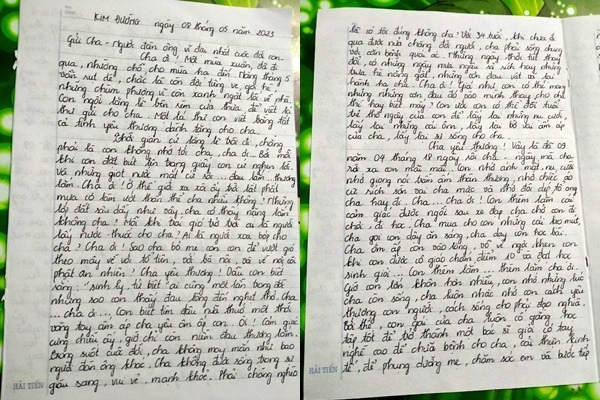 KIM ĐƯỜNG ngày 08 tháng 05 năm 2023
Gửi Cha - Người đàn ông vĩ đại nhất cuộc đời con.
Cha ơi! Một mùa xuân, đã đi
qua, nhường chỗ cho mùa hạ đến. Nắng tháng 5
vẫn dịu dàng,
những chùm phượng vĩ còn xanh ngắt lối về phố.
Con ngồi lặng lẽ bên rèm cửa thưa để viết lá
thư gửi cho cha. Một lá thư con viết bằng tất
cả tình yêu thương dành tặng cho cha.
Thời gian cứ lặng lẽ trôi đi, chẳng
phải là con không nhớ tới cha, cha ơi. Bởi mỗi
khi con đặt bút lên trang giấy con cứ nghẹn lời.
Và những giọt nước mắt cứ rơi... đau lắm... thương
lắm. Cha ơi! Ở thế giới xa xôi ấy trái đất phải
mưa có làm ướt thân thể cha nhiều không? Những
lớp đất sâu dày như vậy, cha có thấy nặng lắm
không cha? Mỗi khi trái gió trở trời ai là người
lấy nước, thuốc cho cha? Ai là người xoa bóp cho
cha? Cha ơi! Sao cha bỏ mẹ con con để vượt gió
theo mây về với tổ tiên, với bà nội, và về nơi cõi
phật an nhiên? Cha yêu thương! Dẫu con biết
rằng: "sinh, lý, tử biệt" ai cũng một lần trong đời
nhưng sao con thấy đau lòng đến nghẹt thở. Cha
... cha ơi... Con biết tìm đâu nữa thuở một thời
vòng tay ấm áp cha yêu ôm ấp con. Ôi! Cảm giác
cũng chiều ấy, giờ chỉ còn niềm đau thương lắm.
Trong suốt cuộc đời, cha không may mắn như bao
người đàn ông khác. Cha không được sống trong sự
giàu sang, vui vẻ, mạnh khỏe. Phải chăng nghèo
HẢI TIẾN
có tóc đúng không cha? Với 34 tuổi, khi chưa đi
qua được nửa chặng đời người, cha phải sống chung
với căn bệnh quái ác. Những ngày thời tiết thay
đổi, có những ngày mưa ngâu rả rích hay những
trưa hè nóng gắt, những cơn đau vật vã lại
hành hạ cha. Cha ơi! Giá như, con có thể mang
những những cơn đau đó vào mình thay cho cha
thì hay biết mấy? Con ước con có thể đổi tuổi
trẻ thơ ngây của con để lấy lại những nụ cười,
lấy lại những cái ôm, lấy lại bờ vai ấm áp
của cha, lấy lại sự sống cho cha.
Cha yêu thương! Vậy là đã 09
năm 04 tháng 18 ngày rồi cha - ngày mà cha
rời xa con mãi mãi. Con nhớ ánh mắt, nụ cười
nhớ giọng nói trầm ấm thân thương, nhớ chiếc áo
cũ rách sờn vai cha mặc và nhớ đôi dép tổ ong
cha hay đi. Cha... Cha ơi! Con thèm lắm cái
cảm giác được ngồi sau xe đạp cha chở con đi
chơi, đi học. Cha mua cho con những cái kẹo mút,
cha gọi con dậy ăn sáng, cha dạy con học bài.
Cha ôm ấp con vào lòng, vỗ về ngợi khen con
khi con được cô giáo chấm điểm 10 và đạt học
sinh giỏi... Con thèm lắm... thèm lắm cha ơi.
Giờ con lớn khôn hơn nhiều, con nhớ những lúc
cha còn sống, cha luôn nhắc nhở con cách yêu
thương con người, cách sống cho phải đạo nghĩa.
Vì thế, con gái của cha luôn cố gắng, học
tập tốt để trở thành một bác sĩ giỏi có tay
nghề cao để chữa bệnh cho cha, cải thiện kinh
tế, để phụng dưỡng mẹ, chăm sóc em và bước tiếp
HẢI TIẾN